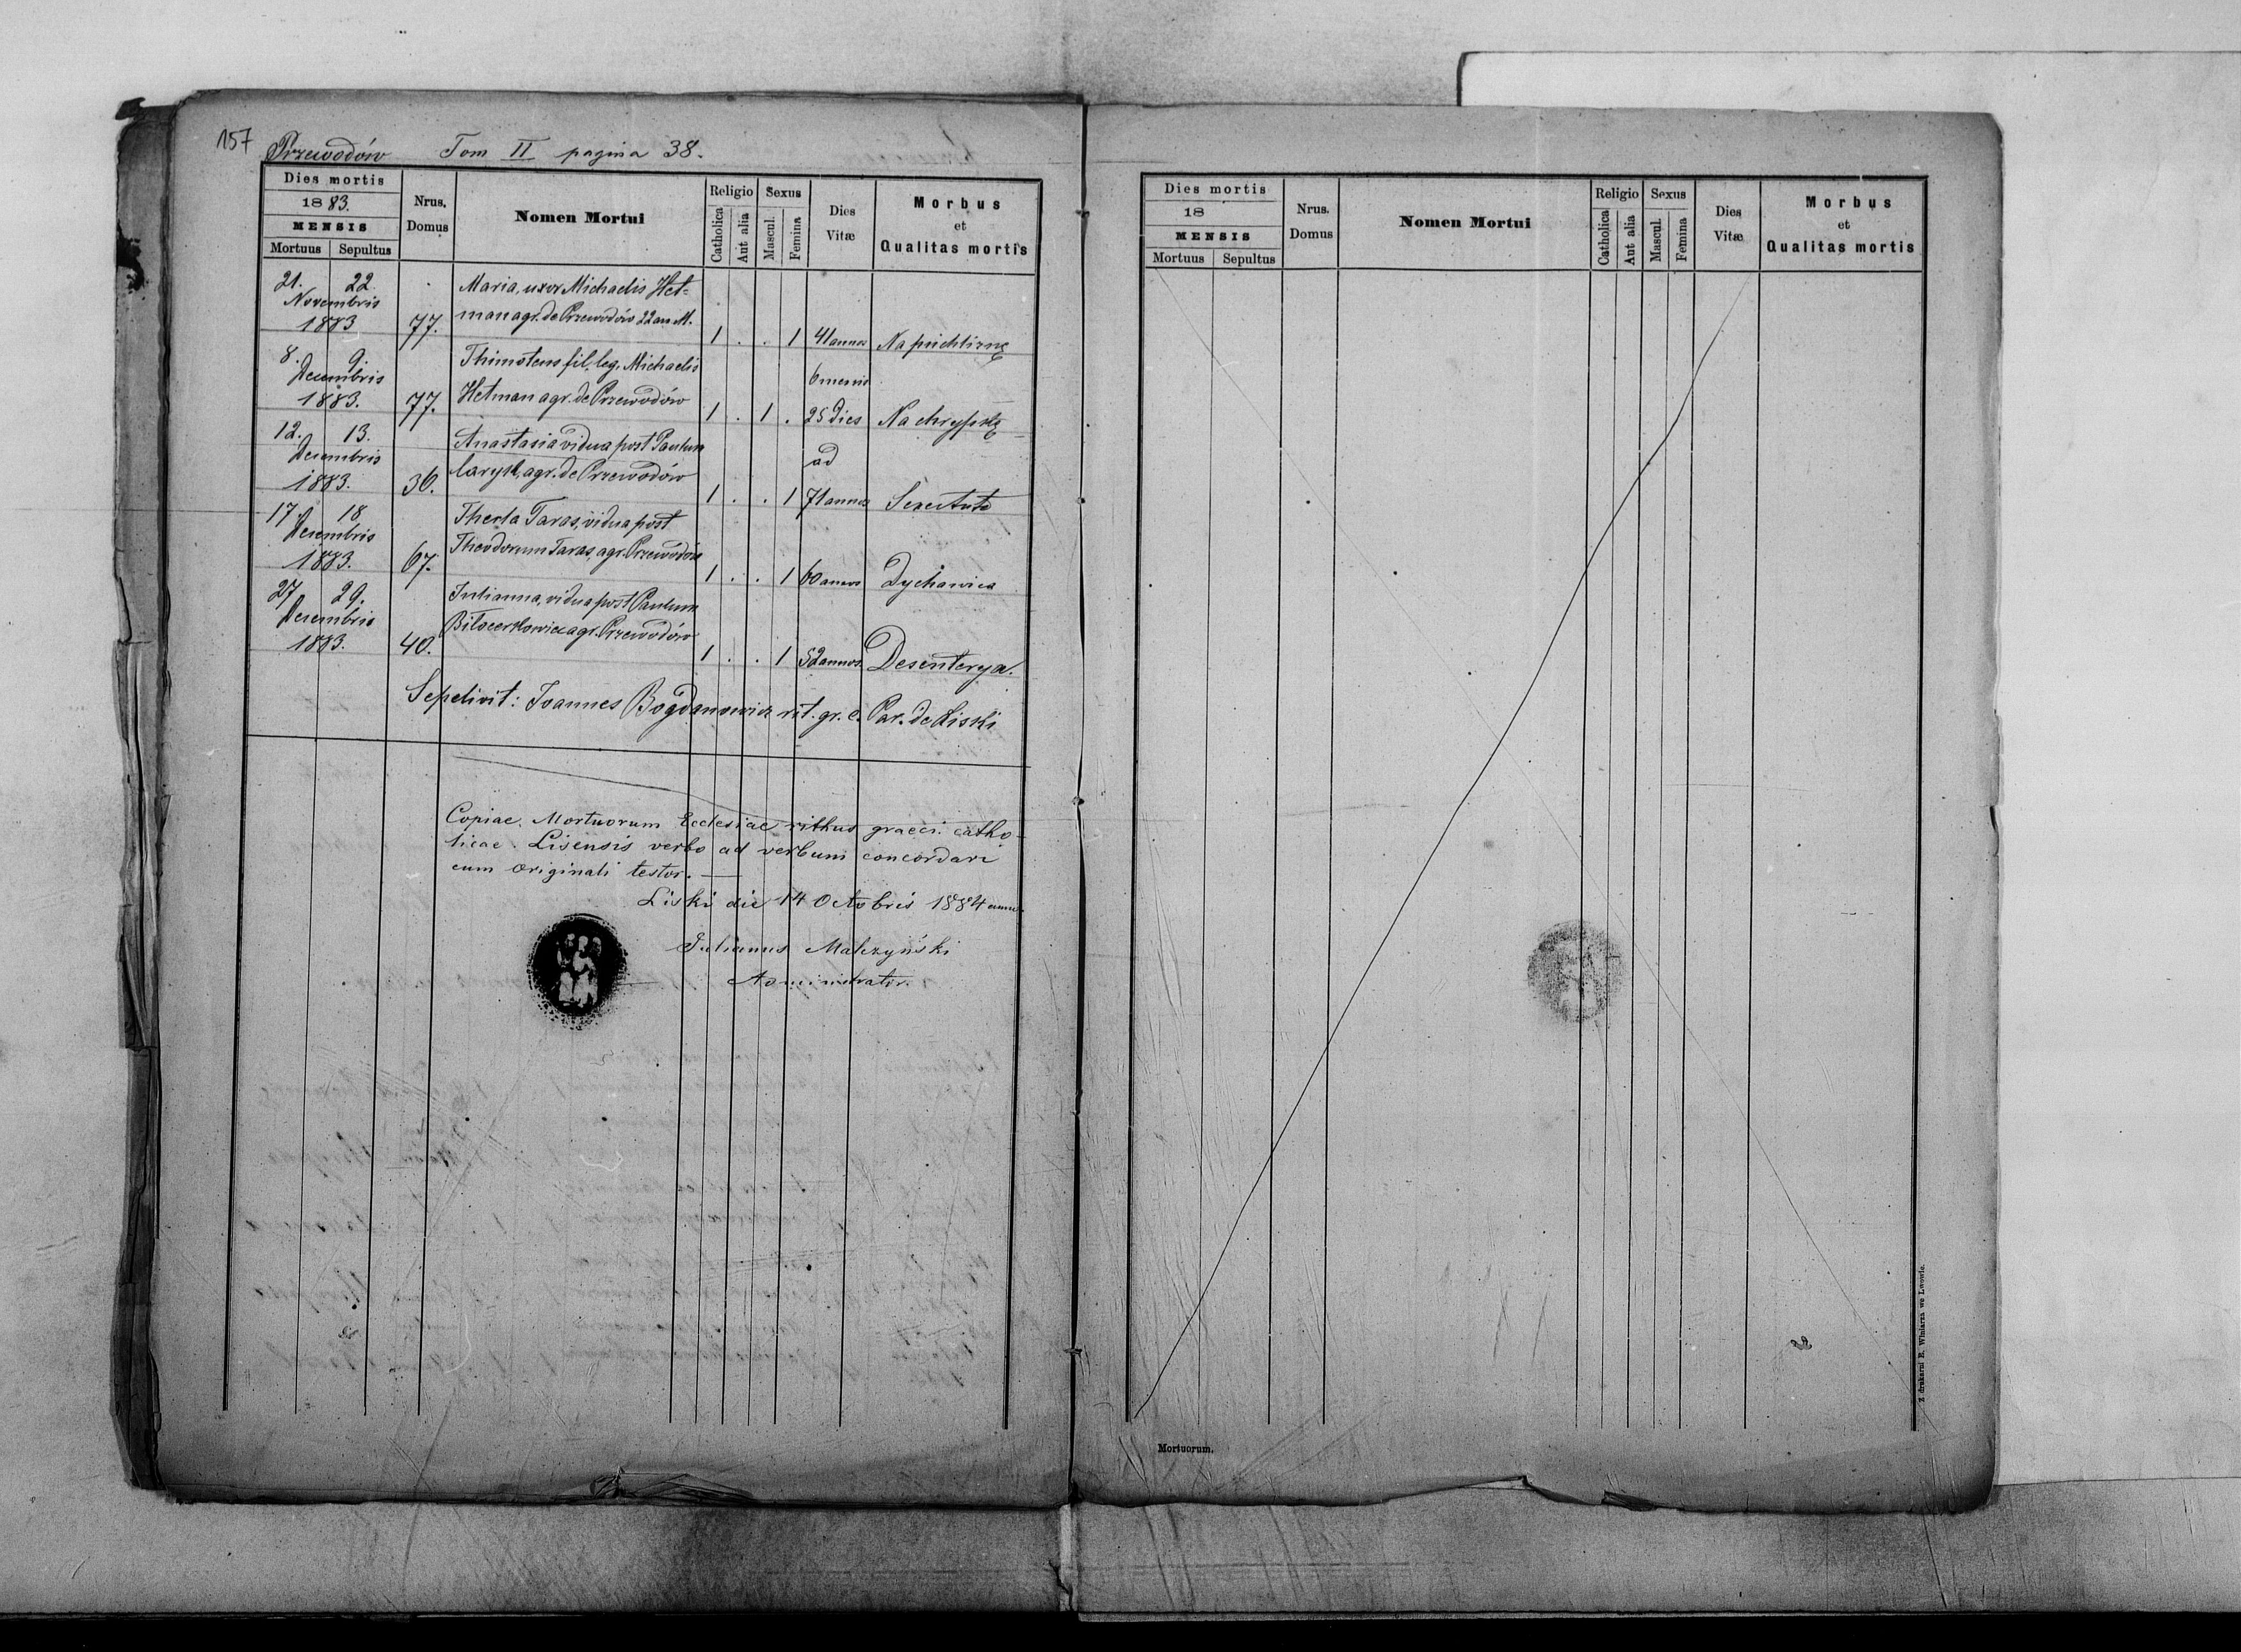 157 Przewodów Tom II pagina 38.
Dies mortis
1883.
MENSIS
Mortuus Sepultus
Nrus.
Domus
Nomen Mortui
Religio
Catholica
Aut alia
Sexus
Mascul.
Femina
Dies
Vitæ
Morbus
et
Qualitas mortis
21. 22.
Novembris
1883
77.
Maria, uxor Michaelis Het-
man agr. de Przewodów 22 an M.
1 . . 1 41 annos
8. 9.
Decembris
1883.
77.
Thimoteus fil. leg. Michaelis
Hetman agr. de Przewodów
1 . 1 .
6 mensis
25 dies
Na chrypkę
12. 13.
Decembris
1883.
36.
Anastasia vidua post Paulum
agr. de Przewodów
1 . . 1
ad
71 annos
Senectute
17. 18
Decembris
1883.
67.
Thecla Taras, vidua post
Theodorum Taras, agr. Przewodów
1 . . 1 60 annos Dychawica
27 29.
Decembris
1883.
40.
Julianna, vidua post Paulum
agr. Przewodów
1 . . 1 52 annos. Desenterya.
Sepelivit: Joannes Bogdanowicz rit. gr. c. Par. de Liski
Copiae Mortuorum Ecclesiae rithus graeci catho-
licae Lisensis verbo ad verbum concordari
cum originali testor.
Liski die 14 Octobris 1884 anno.
Julianus Malczyński
Administrator.
Dies mortis
18
MENSIS
Mortuus Sepultus
Nrus.
Domus
Nomen Mortui
Religio
Catholica
Aut alia
Sexus
Mascul.
Femina
Dies
Vitæ
Morbus
et
Qualitas mortis
Mortuorum.
Z drukarni E. Winiarza we Lwowie.